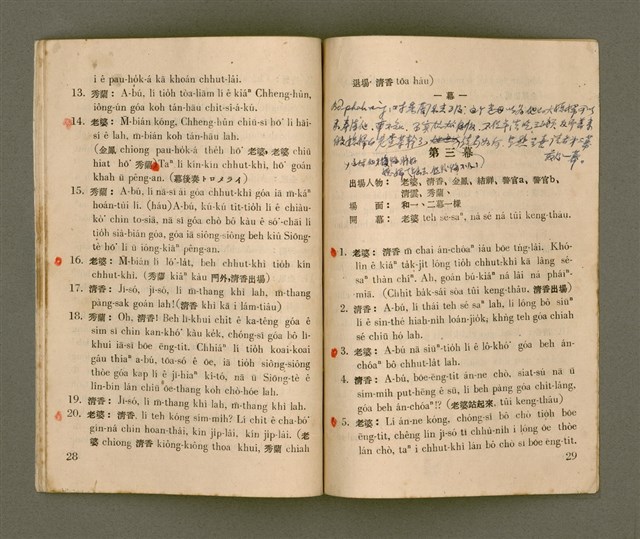 i ê pau-ho̍k-á kā khoán chhut-lâi.
13. 秀蘭：A-bú, lí tio̍h tòa-liām lí ê kiáⁿ Chheng-hûn,
iông-ún góa koh tán-hāu chi̍t-sî-á-kú.
14. 老婆：M̄-bián kóng, Chheng-hûn chiū-sī hō͘ lí hāi-
sí ê lah, m̄-bián koh tán-hāu lah.
(金鳳 chiong pau-ho̍k-á the̍h hō͘ 老婆, 老婆 chiū
hiat hō͘ 秀蘭) Taⁿ lí kín-kín chhut-khì, hō͘ goán
khah ū pêng-an. (幕後奏トロメライ)
15. 秀蘭：A-bú, lí nā-sī ài góa chhut-khì góa iā m̄-káⁿ
hoán-tùi lí. (háu) A-bú, kú-kú tit-tio̍h lí ê chiàu-
kò͘ chin to-siā, nā sī góa chò bô kàu ê só͘-chāi lí
tio̍h siā-biān góa, góa iā siông-siông beh kiû Siōng-
tè hō͘ lí ū iông-kiáⁿ pêng-an.
16. 老婆：M̄-bián lí lô͘-la̍t, beh chhut-khì tio̍h kín
chhut-khì. (秀蘭 kiâⁿ kàu 門外, 清香出場)
17. 清香：Jî-só, jî-só, lí m̄-thang khì lah, m̄-thang
pàng-sak goán lah! (清香 khì kā i lám-tiâu)
18. 秀蘭：Oh, 清香! Beh lī-khui chit ê ka-têng góa ê
sim sī chin kan-khó͘ kàu ke̍k, chóng-sī góa bô lī-
khui iā-sī bōe ēng-tit. Chhiáⁿ lí tio̍h koai-koai
gâu thiaⁿ a-bú, tōa-só ê ōe, iā tio̍h siông-siông
thòe góa kap lí ê jī-hiaⁿ kî-tó, nā ū Siōng-tè ê
lîn-bín lán chiū ōe-thang koh chò-hóe lah.
19. 清香：Jî-só, lí m̄-thang khì lah, m̄-thang khì lah.
20. 老婆：清香, lí teh kóng sím-mih? Lí chit ê cha-bó͘
gín-ná chin hoan-thâi, kín ji̍p-lâi, kín ji̍p-lâi. (老
婆 chiong 清香 kiông-kiông thoa khui, 秀蘭 chiah
28
退場, 清香 tōa háu)
― 一幕 ―
第三幕
出場人物：老婆、清香、金鳳、結鮮、警官a、警官b、
清雲、秀蘭、
場面：和一、二幕一樣
開幕：老婆 teh sé-saⁿ, ná sé ná tûi keng-thâu.
1. 老婆：清香 m̄ chai án-chóaⁿ iáu bōe tńg-lâi. Khó-
lîn ê kiáⁿ ta̍k-ji̍t lóng tio̍h chhut-khì kā lâng sé-
saⁿ thàn chîⁿ. Ah, goán bú-kiáⁿ ná lâi ná pháiⁿ-
miā. (Chhit ba̍k-sái sòa tûi keng-thâu, 清香出場)
2. 清香：A-bú, lí thài teh sé saⁿ, lí lóng bô siūⁿ
lí ê sin-thé hiah-nih loán-jio̍k; khǹg teh góa chiah
sé chiū hó lah.
3. 老婆：A-bú nā siūⁿ-tio̍h lí ê lô-khó͘ góa beh án-
chóaⁿ bô chhut-la̍t lah.
4. 清香：A-bú, bōe-ēng-tit án-ne chò, siat-sú nā ū
sím-mih put-hēng ê sū, lí beh pàng góa chi̍t-lâng,
góa beh án-chóaⁿ!? (老婆站起來, tûi keng-thâu)
5. 老婆：Lí án-ne kóng, chóng-sī bô chò tio̍h bōe
ēng-tit, chêng lín jī-só tī chhù-nih i lóng ōe thòe
lán chò, taⁿ i chhut-khì lán bô chò sī bōe ēng-tit.
29